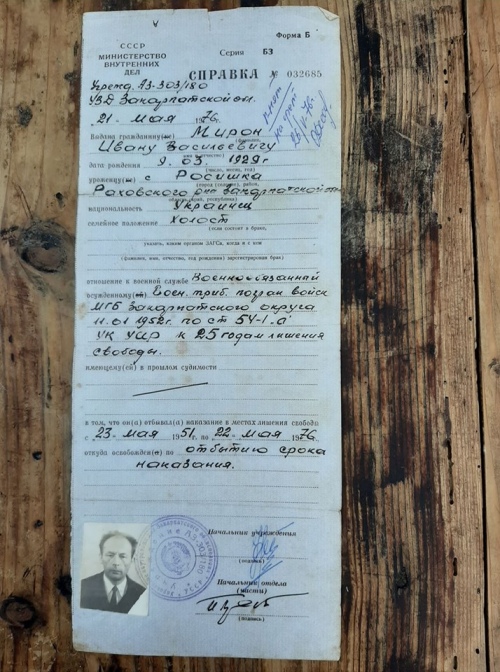 Форма Б
СССР
МИНИСТЕРСТВО
ВНУТРЕННИХ
ДЕЛ
Серия БЗ
СПРАВКА № 032685
Учрежд. УЗ-303/180
УВД Закарпатской обл.
"21" мая 1976г.
Выдана гражданину(ке) Мирон
(фамилия,
Ивану Васильевичу
имя и отчество)
дата рождения 9. 03. 1929г
(число, месяц, год)
уроженцу(ке) с Росишка
(город (селение), район,
Раховского р-на Закарпатской
область, край, республика)
национальность Украинец
семейное положение холост
(если состоит в браке,
указать, каким органом ЗАГСа, когда и с кем
(фамилия, имя, отчество, год рождения) зарегистрирован брак)
отношение к военной службе Военнообязанный
осужденному(ой) Воен. триб. погран войск
МГБ Закарпатского округа
11.01 1952г. по ст 54-1 "а"
УК УССР к 25 годам лишения
свободы.
имеющему(ей) в прошлом судимости
в том, что он(а) отбывал(а) наказание в местах лишения свободы
с "23" мая 1951 г. по "22" мая 1976
откуда освобожден(а) по отбытию срока
наказания.
Начальник учреждения
(подпись)
Начальник отдела
(части)
(подпись)